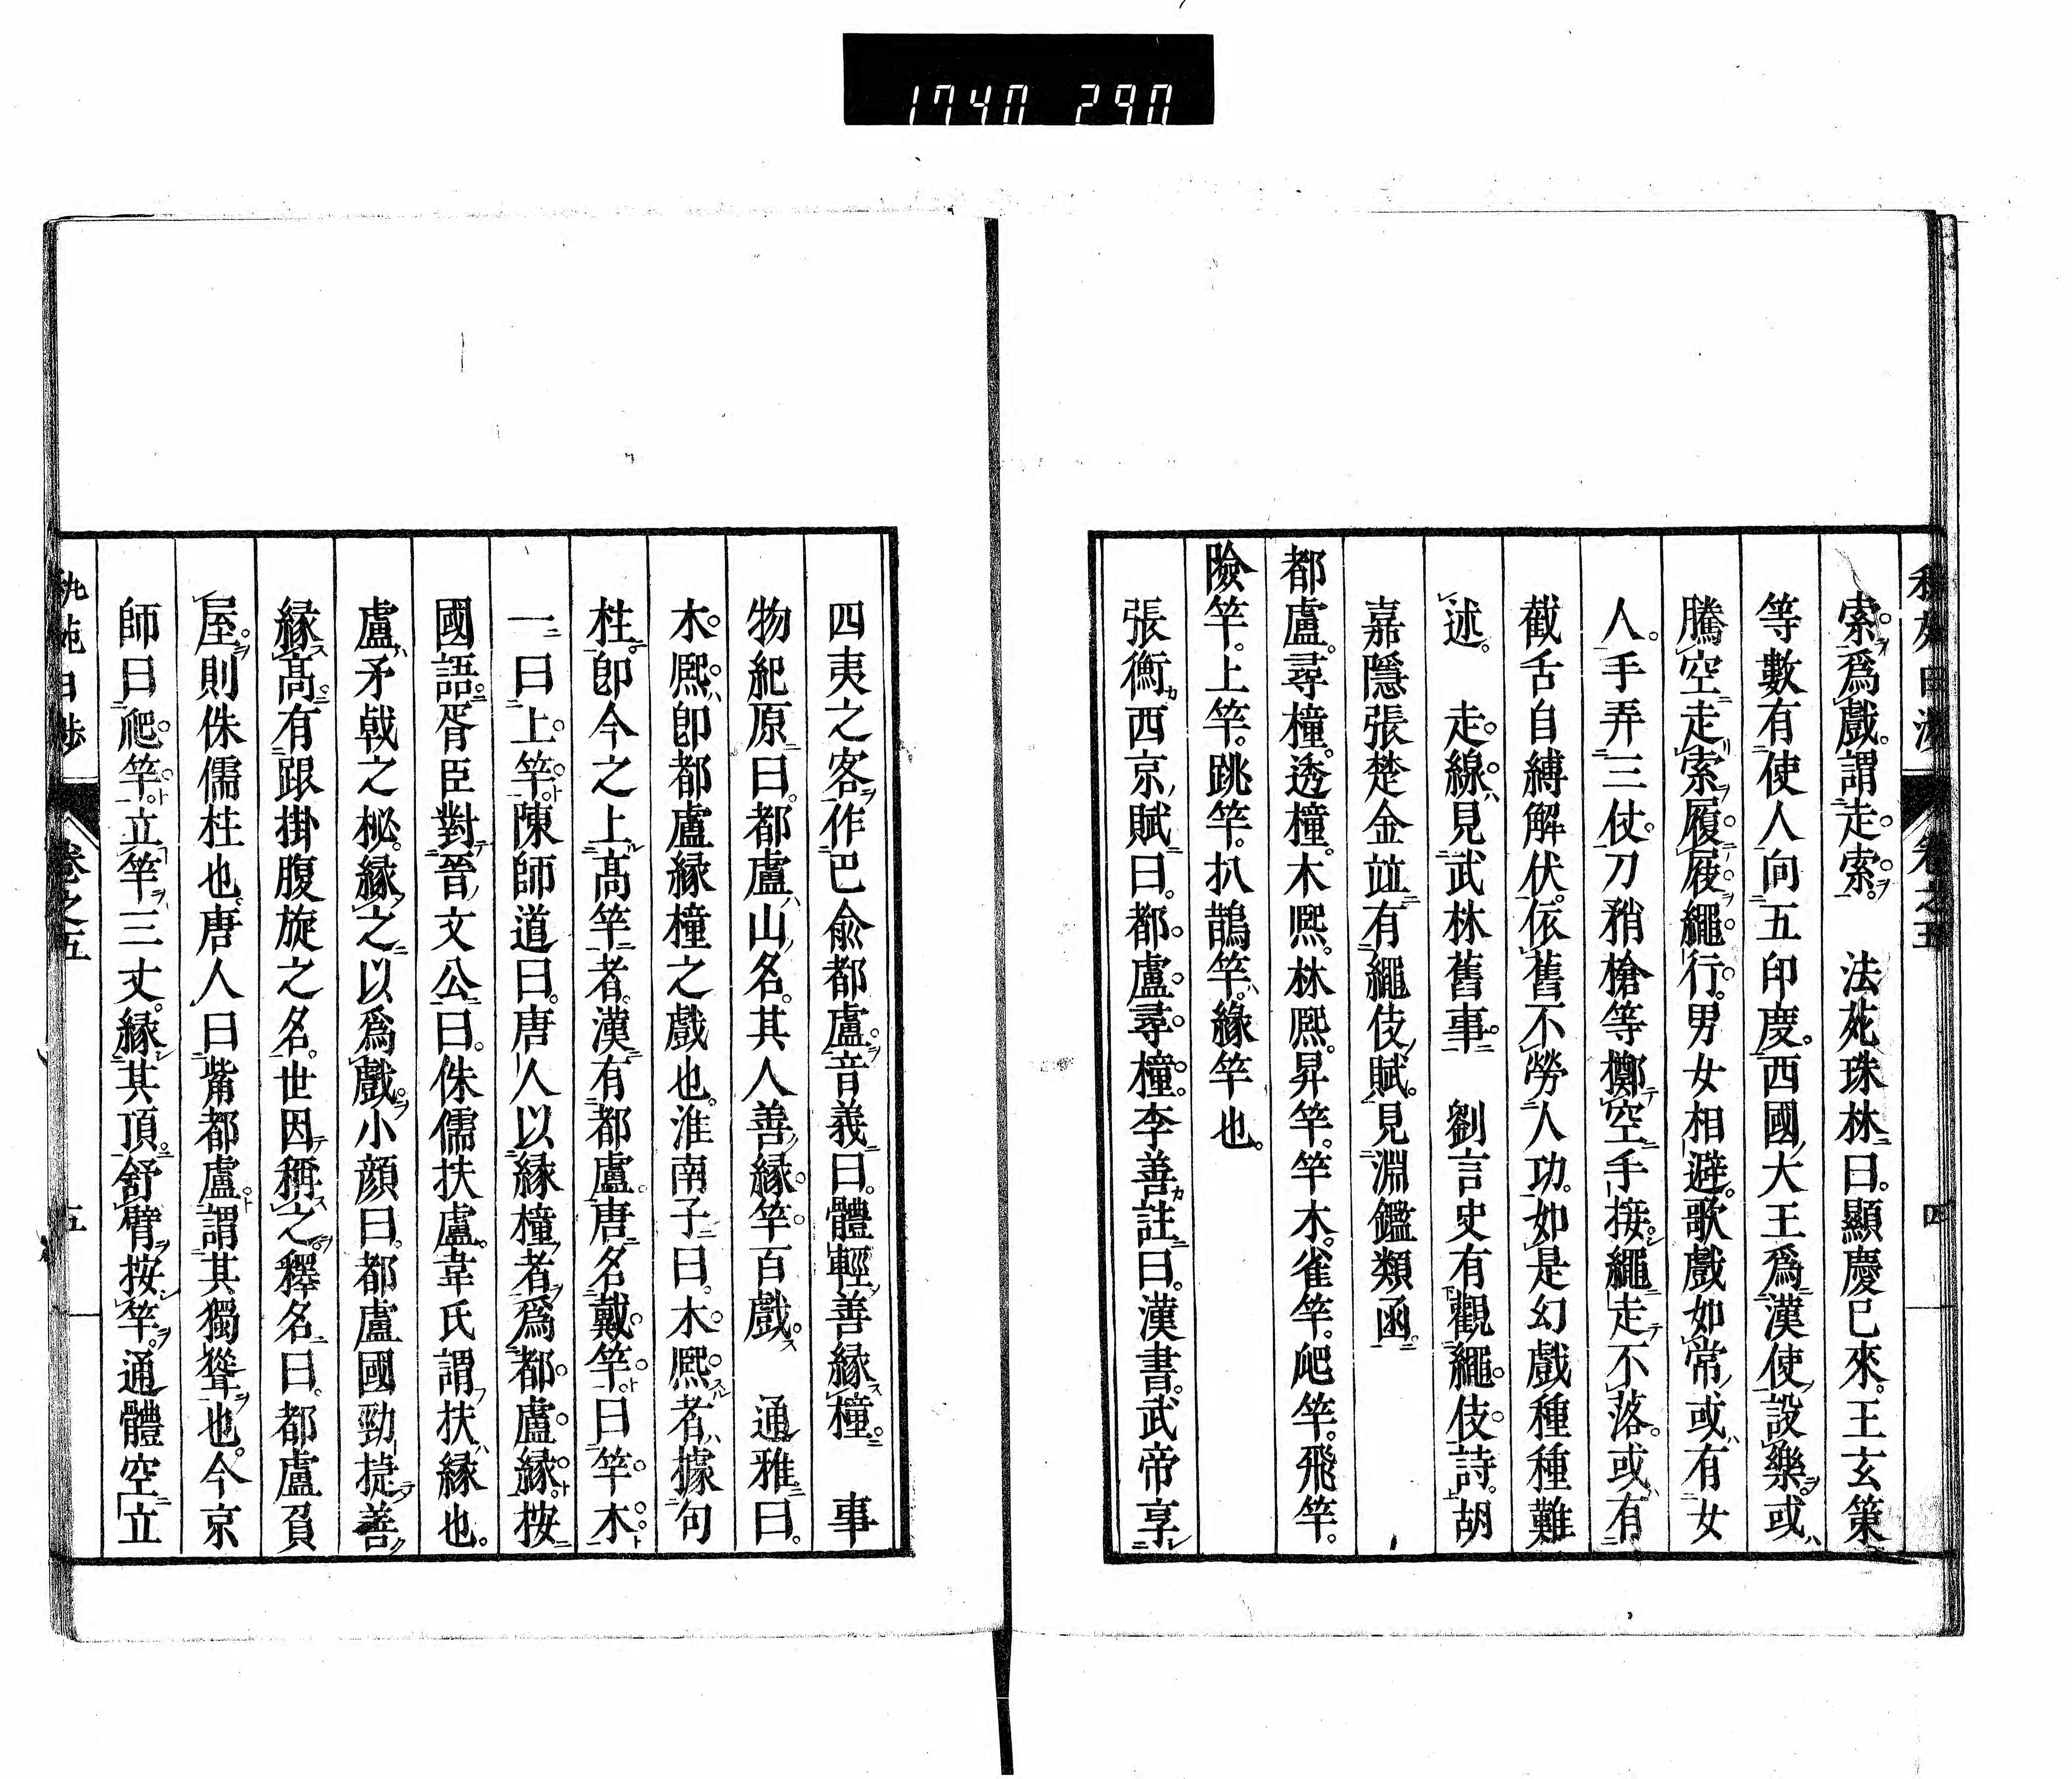 1740 290
索爲戲謂走索。　法苑珠林曰。顯慶已來。王玄策
等數有使人向五印度。西國大王爲漢使設樂。或
騰空走索履屐繩行。男女相避。歌戲如常或有女
人。手弄三仗。刀矟槍等擲空手接。繩走不落。或有
截舌自縛解伏。依舊不勞人功。如是幻戲種種難
述。　走線見武林舊事。　劉言史有觀繩伎詩。胡
嘉隱張楚金竝有繩伎賦。見淵鑑類函。
都盧。尋橦。透橦。木熙。林熙。昇竿。竿木。雀竿。爬竿。飛竿。
險竿。上竿。跳竿。扒鵲竿。緣竿也。
張衡西京賦曰。都盧尋橦。李善註曰。漢書。武帝享
卷之五
四
四夷之客作巴兪都盧。音義曰。體輕善緣橦。　事
物紀原曰。都盧山名。其人善緣竿百戲。　通雅曰。
木熙卽都盧緣橦之戲也。淮南子曰。木熙者據句
枉。卽今之上高竿者。漢有都盧。唐名戴竿。曰竿木。
一曰上竿。陳師道曰。唐人以緣橦者爲都盧緣。按
國語胥臣對晉文公曰。侏儒扶盧。韋氏謂扶緣也。
盧矛戟之柲。緣之以爲戲。小顏曰。都盧國勁捷善
緣高。有跟掛腹旋之名。世因稱之。釋名曰。都盧負
屋。則侏儒柱也。唐人曰觜都盧。謂其獨聳也。今京
師曰爬竿。立竿三丈。緣其頂。舒臂按竿。通體空立
秇苑日渉
卷之五
五